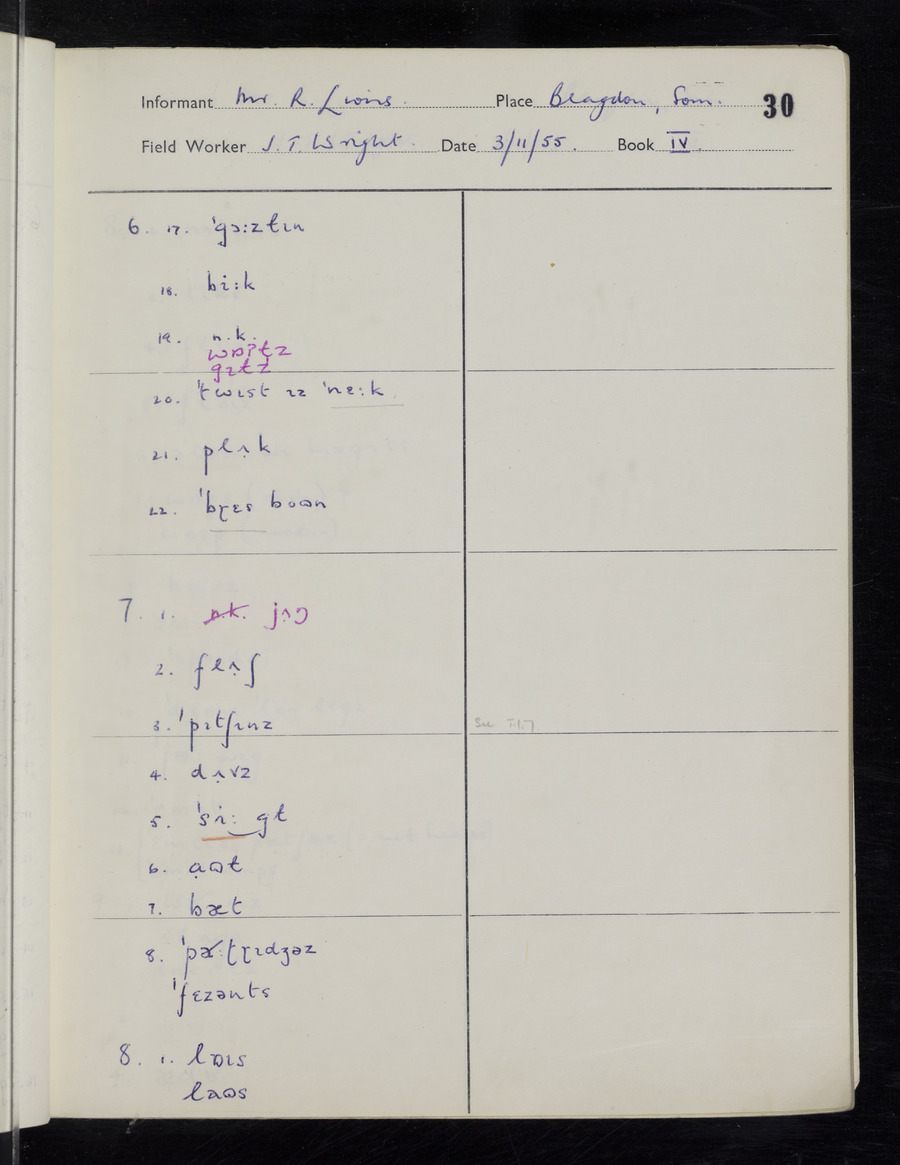 Informant Mr. R. Lyons. Place Blagdon, Som. 30
Field Worker J. T. Wright. Date 3/11/55. Book IV.
6. 17. ˈgɔːztɩn
18. biːk
19. n.k.
wɒʔt̬z
gɪt̬z
20. ˈtwɩst ɩz ˈnɛːk
21. plʌ̣k
22. ˈbɽɛs boɷn
7. 1. n.k. jʌɔ
2. flʌ̣ʃ
3. ˈpɪtʃɩnz See 7.1.7
4. dʌ̣vz
5. ˈsiː‿gt
6. a̤ɷt
7. bæt
8. ˈpɚːt̬ɽɩdʒəz
ˈfɛzənts
8. 1. lɒɩs
laɷs